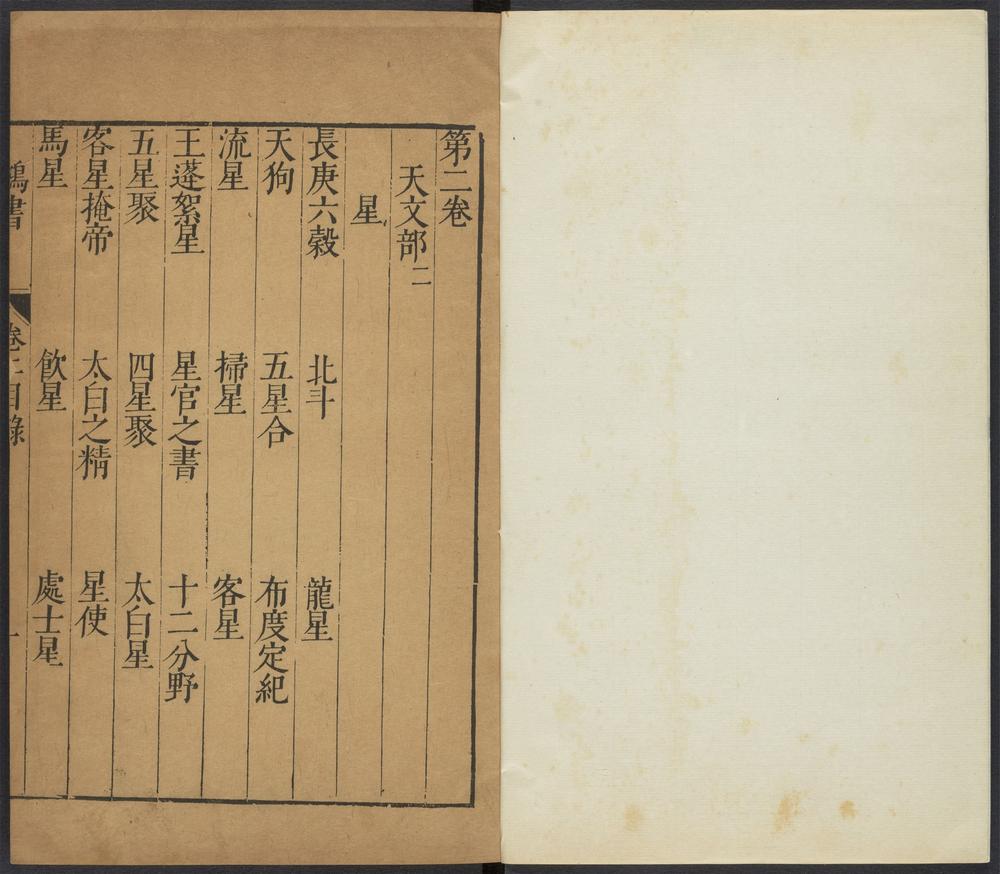 第二卷
天文部二
星
長庚六穀 北斗 龍星
天狗 五星合 布度定紀
流星 掃星 客星
王蓬絮星 星官之書 十二分野
五星聚 四星聚 太白星
客星掩帝 太白之精 星使
馬星 飲星 處士星
鴻書 卷二目錄 一